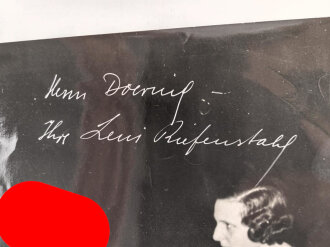 Herrn Doernig –
Ihre Leni Riefenstahl